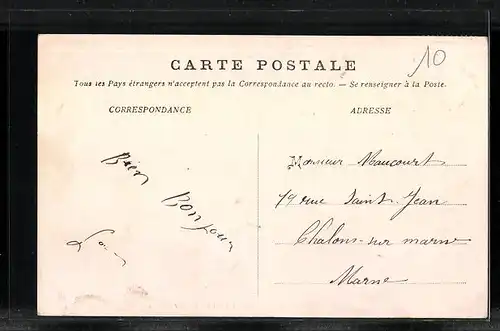 10
CARTE POSTALE
Tous les Pays étrangers n'acceptent pas la Correspondance au recto. — Se renseigner à la Poste.
CORRESPONDANCE
ADRESSE
Bien
Bonjour
Monsieur Maucourt
79 rue Saint-Jean
Chalons-sur marne
Marne